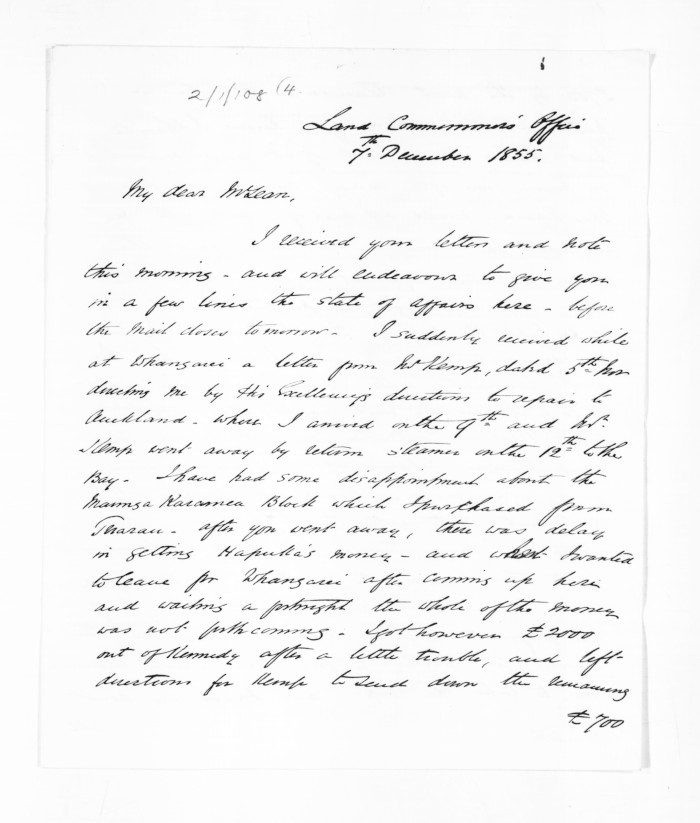 2/1/108 (4.
Land Commissioners' Office
7th December 1855.
My dear McLean,
I received your letters and note
this morning - and will endeavour to give you
in a few lines the state of affairs here - before
the Mail closes tomorrow - I suddenly received while
at Whangarei a letter from Mr Kemp, dated 5th Nov
directing me by His Excellency's directions to repair to
Auckland - where I arrived on the 9th and Mr
Kemp went away by return steamer on the 12th to the
Bay. I have had some disappointment about the
Maunga Karamea Block which I purchased from
Tirarau - after you went away, there was delay
in getting Hapuka's money - and when I wanted
to leave for Whangarei after coming up here
and waiting a fortnight the whole of the money
was not forthcoming - I got however £2000
out of Kennedy after a little trouble, and left
directions for Kemp to send down the remaining
£700